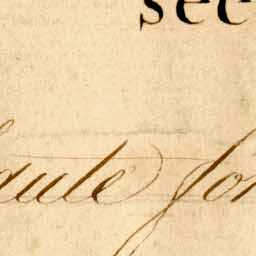 see
aule for